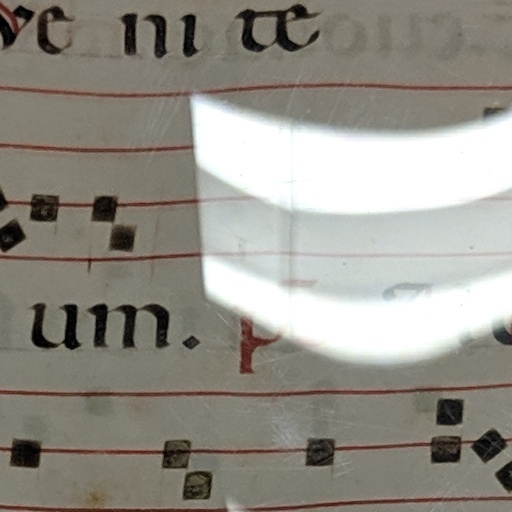 ve ni te
um. p